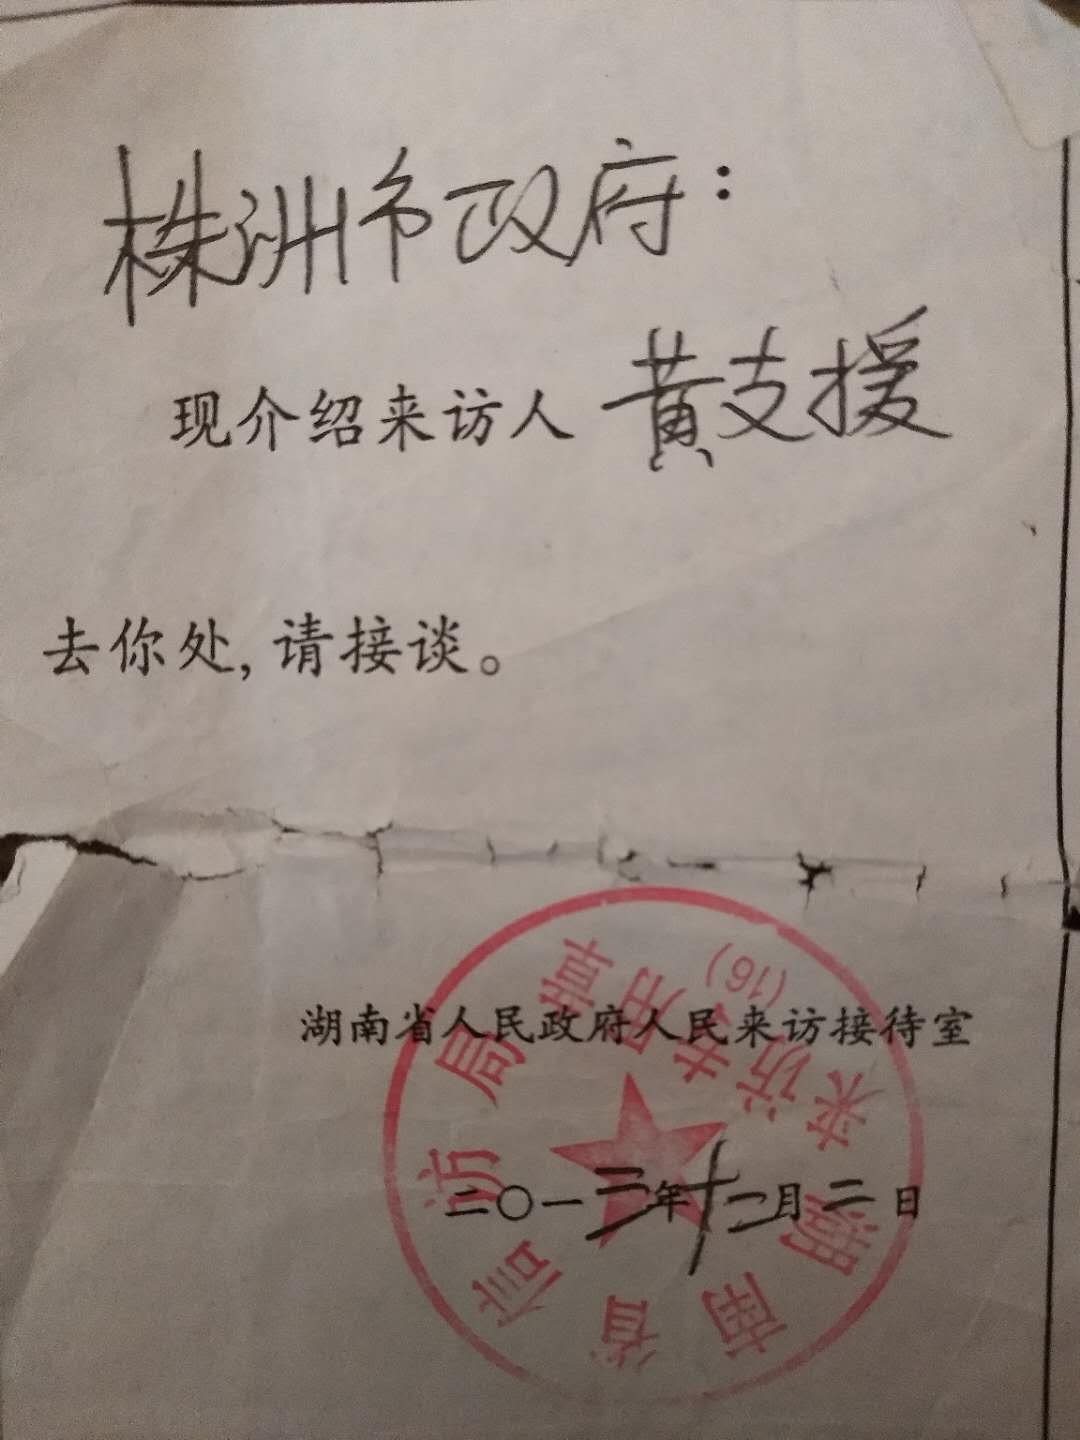 株洲市政府：
现介绍来访人 黄支援
去你处,请接谈。
湖南省人民政府人民来访接待室
二〇一三年十二月二日
湖南省信访局
来访专用章
(16)